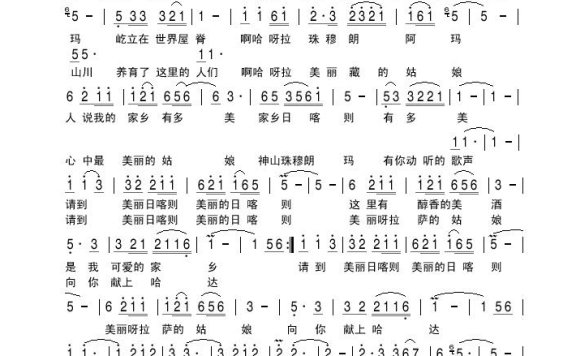 5 - | 5 33 321 | 1 - | i i 6i | 2·3 2321 | 161 | 5 | 5 -
玛 屹立在 世界屋 脊 啊哈 呀拉 珠 穆 朗 阿 玛
55· 11·
山川 养育了 这里的 人们 啊哈 呀拉 美 丽 藏 的 姑 娘
6 2 11 | 121 656 | 6 3· | 65 3561 | 5 - | 53 3221 | 1 - | 1 - |
人 说我的 家乡 有多 美 家乡日 喀 则 有 多 美
11· |
心 中最 美丽的 姑 娘 神山珠穆朗 玛 有你动 听的 歌声
1 1 3 | 32 211 | 621 165 | 5 - | 5 - | 6 211 | 121 656 | 5 - |
请到 美丽日喀则 美丽的日 喀 则 这 里有 醇香的美 酒
请到 美丽日喀则 美丽的日 喀 则 美 丽呀拉 萨的 姑 娘
5· 3 | 3 21 2116 | 1 - | 1 56 :| 1 1 3 | 32 211 | 621 165 | 5 - |
是 我 可爱的 家 乡 请 到 美丽日喀则 美丽的日 喀 则
向 你 献上 哈 达
5 - | 6 211 | 121 656 | 5 - | 5· 3 | 3 2 2116 | 1 - | 1 56 |
美丽呀拉 萨的 姑 娘 向 你 献上 哈 达